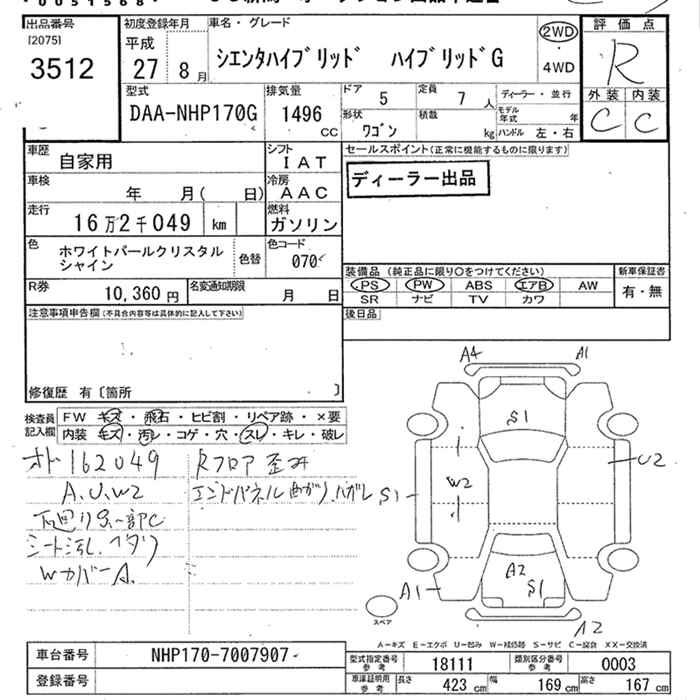 0051568
出品番号
[2075]
3512
初度登録年月
平成
27 8月
車名・グレード
シエンタハイブリッド ハイブリッドG
2WD
・
4WD
評価点
R
外装 内装
C C
型式
DAA-NHP170G
排気量
1496 CC
ドア 5
定員 7人
ディーラー・並行
モデル年式 年
形状 ワゴン
積載 kg
ハンドル 左・右
車歴 自家用
シフト IAT
セールスポイント(正常に機能するものに限ります)
ディーラー出品
車検 年 月( 日)
冷房 AAC
走行 16万2千049 km
燃料 ガソリン
色 ホワイトパールクリスタル
シャイン
色替
色コード 070
装備品 (純正品に限り○をつけてください)
新車保証書
PS PW ABS エアB AW
有・無
SR ナビ TV カワ
R券 10,360円
名変通知期限 月 日
後日品
注意事項申告欄(不具合内容等は具体的に記入して下さい)
修復歴 有〔箇所 〕
検査員
記入欄
FW キズ・飛石・ヒビ割・リペア跡・×要
内装 キズ・汚レ・コゲ・穴・スレ・キレ・破レ
オド162049
A.U.W2
下廻りS.一部C
シート汚レ.ヘタリ
WカバーA.
Rフロア歪み
エンドパネル曲がり.ハガレ
A4 A1
S1
W2
U2
S1
A2
S1
A1
A2
スペア
A-キズ E-エクボ U-凹み W-補修跡 S-サビ C-腐食 XX-交換済
車台番号 NHP170-7007907
登録番号
型式指定番号参考 18111
類別区分番号参考 0003
車庫証明用参考 長さ 423cm 幅 169cm 高さ 167cm